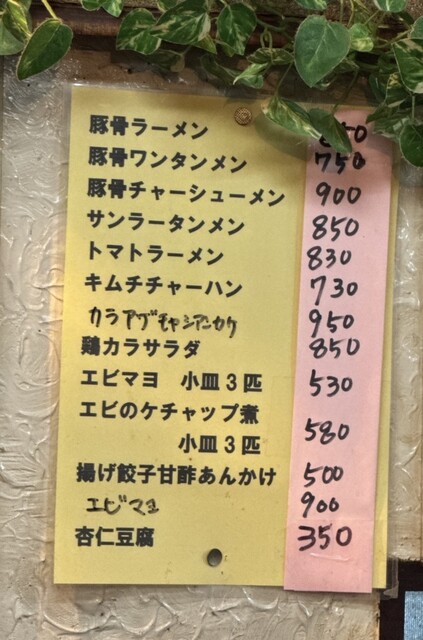 豚骨ラーメン
豚骨ワンタンメン 750
豚骨チャーシューメン 900
サンラータンメン 850
トマトラーメン 830
キムチチャーハン 730
カラアゲ 950
鶏カラサラダ 850
エビマヨ 小皿3匹 530
エビのケチャップ煮
小皿3匹 580
揚げ餃子甘酢あんかけ 500
エビマヨ 900
杏仁豆腐 350